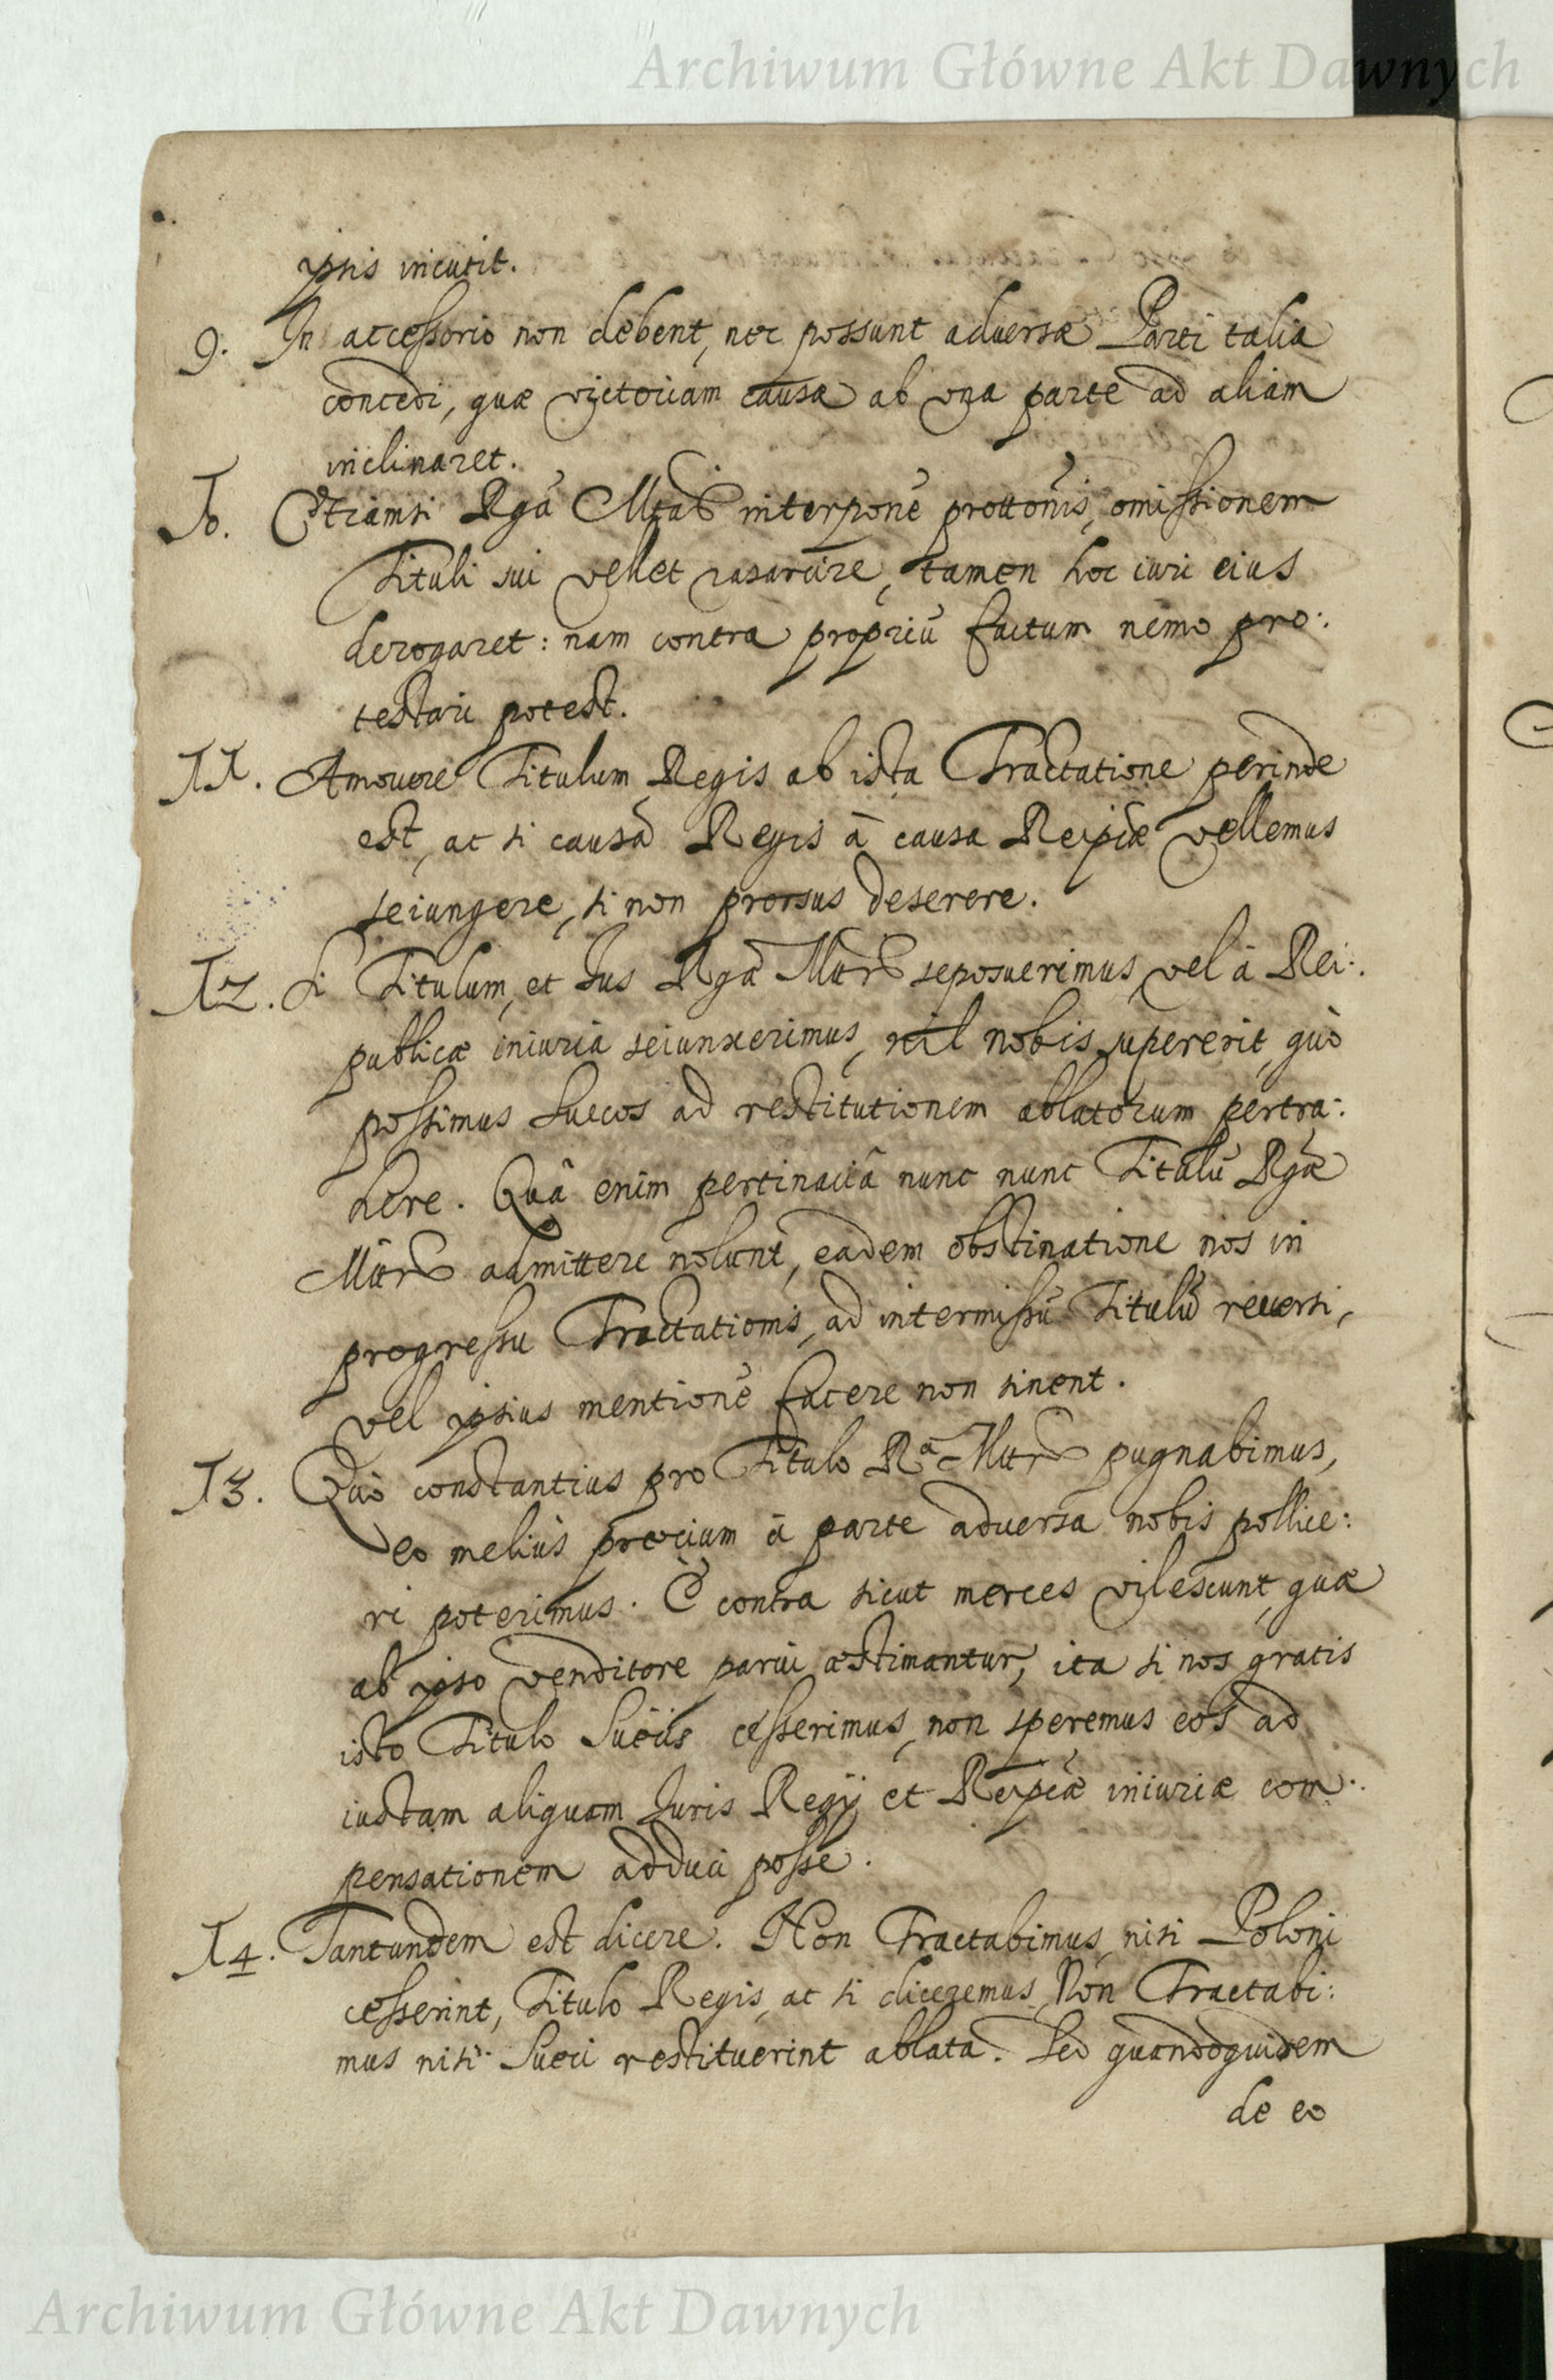 Archiwum Główne Akt Dawnych
ipsis incutit.
9. In accessorio non debent, nec possunt adversæ Parti talia
concedi, quæ victoriam causæ ab vna parte ad aliam
inclinaret.
10. Etiamsi Rga Mtas interpone prottonis, omissionem
Tituli sui vellet rasarcire, tamen hoc iuri eius
derogaret: nam contra propriũ factum nemo pro:
testari potest.
11. Amouere Titulum Regis ab ista Tractatione perinde
est, ac si causã Regis à causa Reipcæ vellemus
seiungere, si non prorsus deserere.
12. Si Titulum, et Ius Rgæ Mttis seposuerimus, vel à Rei:
publicæ iniuria seiunxerimus, nil nobis supererit, quò
possimus Suecos ad restitutionem ablatorum pertra:
here. Quâ enim pertinaciâ nunc nunc Titulũ Rgæ
Mttis admittere nolunt, eadem obstinatione nos in
progressu Tractationis, ad intermissũ Titulũ reuersi,
vel ipsius mentionẽ facere non sinent.
13. Quò constantius pro Titulo Ra Mttis pugnabimus,
eo meliùs præcium à parte adversa nobis pollice:
ri poterimus. È contra sicut merces vilescunt, quæ
ab ipso venditore parui æstimantur, ita si nos gratis
isto Titulo Suecis cesserimus, non speremus eos ad
iustam aliquam Iuris Regij et Reipcæ iniuriæ com:
pensationem adduci posse.
14. Tantundem est dicere. Non Tractabimus, nisi Poloni
cesserint, Titulo Regis, ac si diceremus, Non Tractabi:
mus nisi Sueci restituerint ablata. Sed quandoquidem
de eo
Archiwum Główne Akt Dawnych